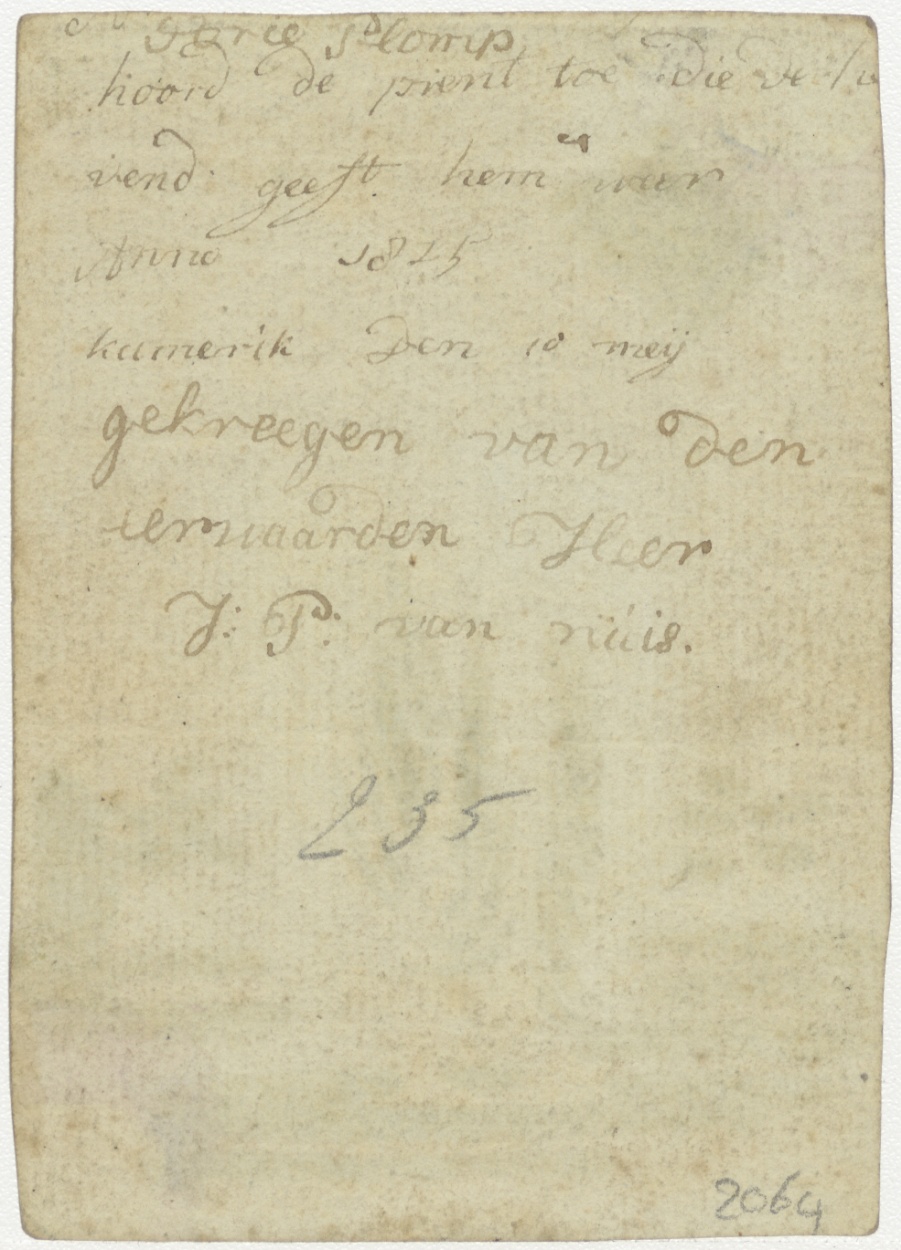 Slomp
hoord de prent toe die ve
vend geeft hem war
Anno 1815
kamerik Den 10 meij
gekreegen van den
eerwaarden Heer
J: P: van nüis.
235
2064